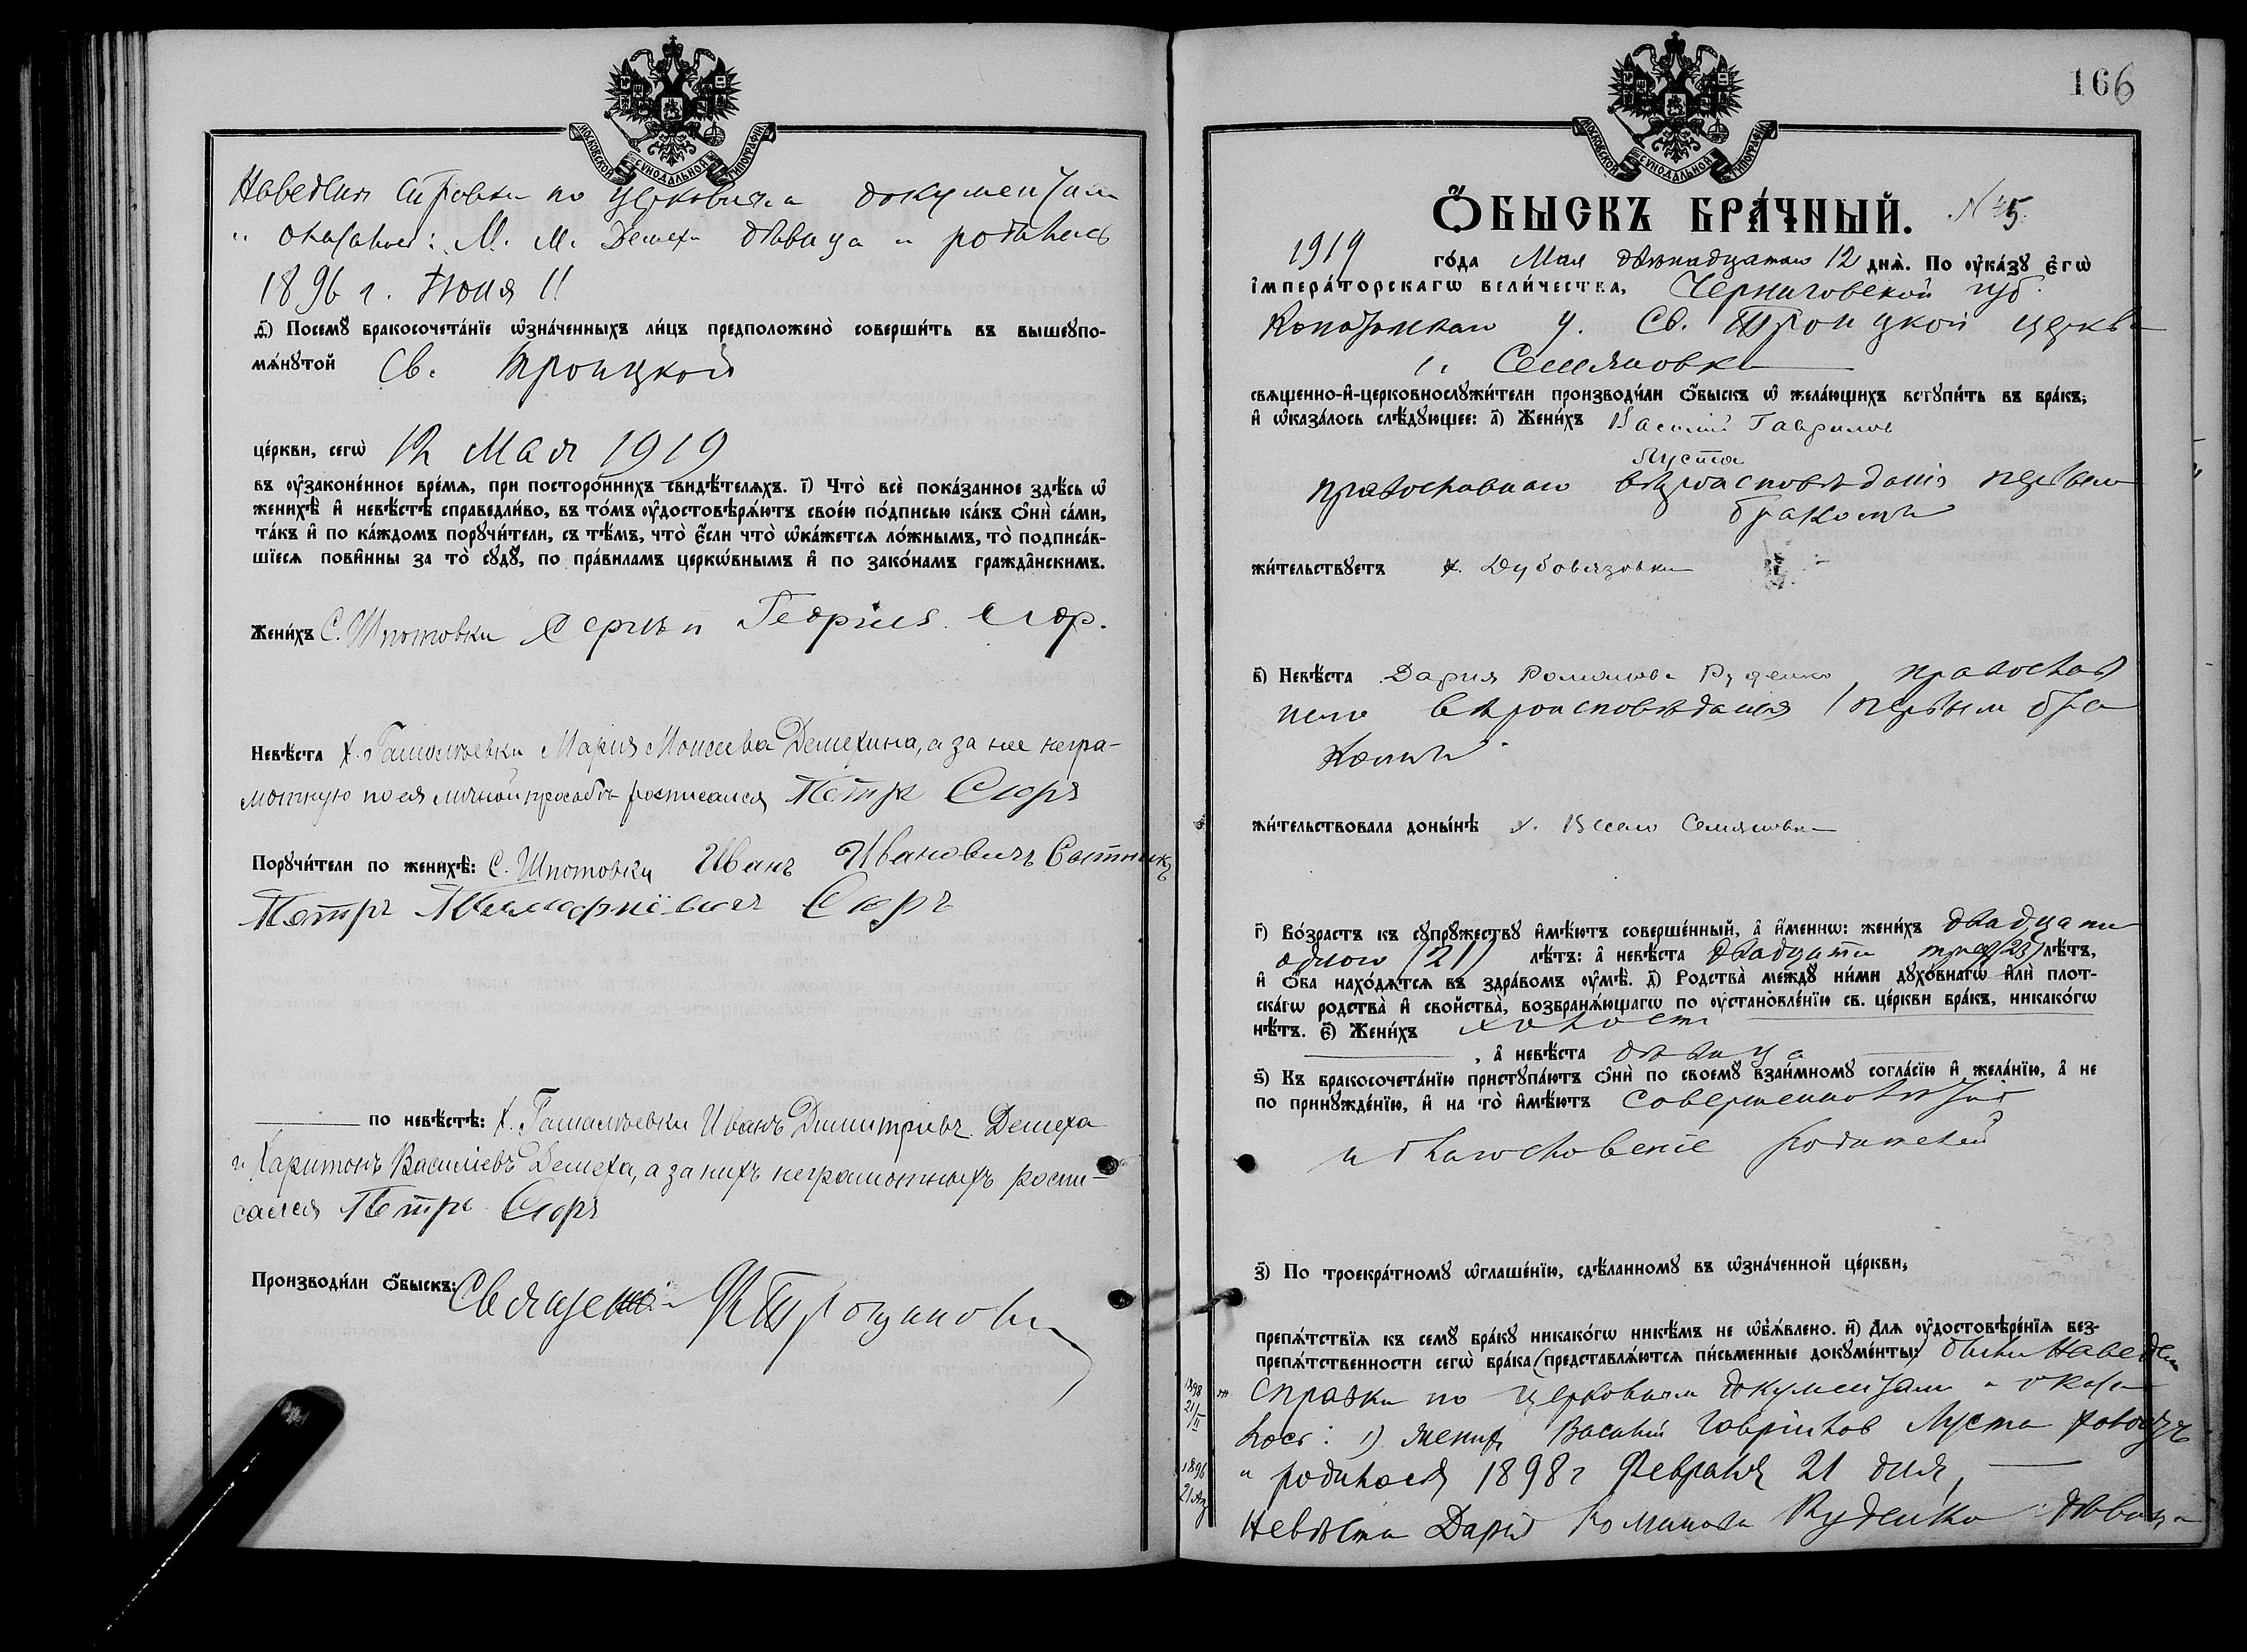 МОСКОВСКОЙ СѴНОДАЛЬНОЙ ТИПОГРАФІИ
справки по церковнымъ документам
и оказалось: М. М. Демеха дѣвица и родилась
1896 г. Іюня 11
Посемꙋ̀ бракосочета́нїе ѡ҆зна́ченныхъ ли́цъ предположено̀ соверши́ть въ вышеꙋпо-
мѧ́нꙋтой Св. Троицкой
це́ркви, сегѡ̀ 12 Мая 1919
въ ᲂу҆законе́нное вре́мѧ, при посторо́ннихъ свидѣ́телѧхъ. і҃) Что̀ всѐ пока́занное здѣ́сь ѡ҆
женихѣ̀ и҆ невѣ́стѣ справедли́во, въ то́мъ ᲂу҆достовѣрѧ́ютъ свое́ю по́дписью ка́къ ѻ҆нѝ са́ми,
та́къ и҆ по ка́ждомъ порꙋчи́тели, съ тѣ́мъ, что̀ є҆́сли что̀ ѡ҆ка́жетсѧ ло́жнымъ, то̀ подписа́в-
шїесѧ пови́нны за то̀ сꙋдꙋ̀, по пра́виламъ церкѡ́внымъ и҆ по зако́намъ гражда̑нскимъ.
Жени́хъ С. Шпотовки Георгия
Невѣ́ста х. Мария Моисеева Демехина, а за нее негра-
мотную по ея личной просьбѣ росписался Петръ Сюръ
Порꙋчи́тели по женихѣ̀: С. Шпотовки Иванъ Ивановичъ
Петръ Сюръ
по невѣ́стѣ: х. Иванъ Димитріевъ Демеха
и Харитонъ Василіевъ Демеха, а за нихъ неграмотныхъ роспи-
сался Петръ Сюръ
Производи́ли ѻ҆́быскъ:
166
МОСКОВСКОЙ СѴНОДАЛЬНОЙ ТИПОГРАФІИ
Ѻ҆БЫСКЪ БРА́ЧНЫЙ. №
1919 го́да Мая двѣнадцатаго 12 днѧ̀. По ᲂу҆ка́зꙋ є҆гѡ̀
і҆мпера́торскагѡ вели́чества, Черниговской губ.
Конотопскаго у. Св. Троицкой церкви
Семяновки
свѧщенно-и҆-церковнослꙋжи́тели производи́ли ѻ҆́быскъ ѡ҆ жела́ющихъ встꙋпи́ть въ бра́къ,
и҆ ѡ҆каза́лось слѣ́дꙋющее: а҃) Жени́хъ Василій Гаврилов
Луста
православнаго вѣроисповѣданія первым
браком
жи́тельствꙋетъ х. Дубовязовки
в҃) Невѣ́ста Дария Романова Руденко, православ
наго вѣроисповѣдания первым бра
ком
жи́тельствовала доны́нѣ х. Семяновки
г҃) Во́зрастъ къ сꙋпрꙋ́жествꙋ и҆мѣ́ютъ соверше́нный, а҆ и҆́меннѡ: жени́хъ двадцати
одного (21) лѣ́тъ: а҆ невѣ́ста двадцати трех (23) лѣ́тъ,
и҆ ѻ҆́ба нахо́дѧтсѧ въ здра́вомъ ᲂу҆мѣ̀. д҃) Родства̀ междꙋ̀ ни́ми дꙋхо́внагѡ и҆лѝ плот-
ска́гѡ родства̀ и҆ сво́йства̀, возбранѧ́ющагѡ по ᲂу҆становле́нїю св. це́ркви бра́къ, никако́гѡ
нѣ́тъ. є҃) Жени́хъ холост
, а҆ невѣ́ста дѣвица
ѕ҃) Къ бракосочета́нїю пристꙋпа́ютъ ѻ҆нѝ по своемꙋ̀ взаи́мномꙋ согла́сїю и҆ жела́нїю, а҆ не
по принꙋжде́нїю, и҆ на то̀ и҆мѣ́ютъ
и благословеніе родителей
з҃) По троекра́тномꙋ ѡ҆глаше́нїю, сдѣ́ланномꙋ въ ѡ҆зна́ченной це́ркви,
препѧ́тствїѧ къ семꙋ̀ бра́кꙋ никако́гѡ никѣ́мъ не ѡ҆б̾ѧ́влено. и҃) Длѧ ᲂу҆достовѣре́нїѧ без-
препѧ́тственности сегѡ̀ бра́ка (представлѧ́ютсѧ пи́сьменные докꙋме́нты:) были наведены
справки по церковным документам и оказа
лось: 1) жених Василій Гаврилов Луста холостъ
и родился 1898 г Февраля 21 дня,
невѣста Дарія Романова Руденко дѣвица
1898
21/II
1896